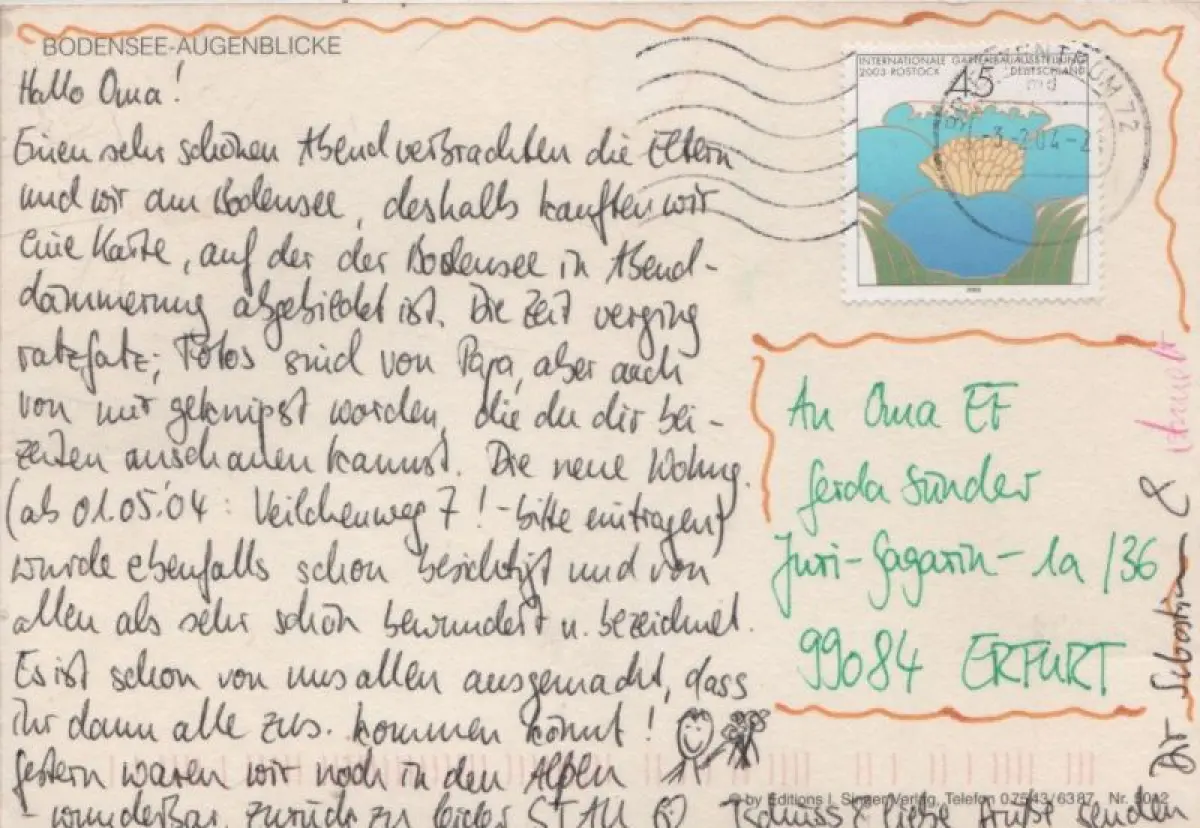 BODENSEE-AUGENBLICKE
Hallo Oma!
Einen sehr schönen Abend verbrachten die Eltern
und wir am Bodensee, deshalb kauften wir
eine Karte, auf der der Bodensee in Abend-
dämmerung abgebildet ist. Die Zeit verging
ratzfatz; Fotos sind von Papa, aber auch
von mir geknipst worden, die du dir bei-
zeiten anschauen kannst. Die neue Wohng.
(ab 01.05.'04: Veilchenweg 7! - bitte eintragen)
wurde ebenfalls schon besichtigt und von
allen als sehr schön bewundert u. bezeichnet.
Es ist schon von uns allen ausgemacht, dass
ihr dann alle zus. kommen könnt!
Gestern waren wir noch in den Alpen
- wunderbar, zurück zu leider STAU Tschüss & liebe Grüße senden
Dir Sebastian &
INTERNATIONALE GARTENBAUAUSSTELLUNG
2003 ROSTOCK DEUTSCHLAND
45
BRIEFZENTRUM 72
-3.2.04-2
2003
An Oma EF
Gerda Sünder
Juri-Gagarin-1a/36
99084 ERFURT
© by Editions I. Singer Verlag, Telefon 07543/6387 Nr. 5012